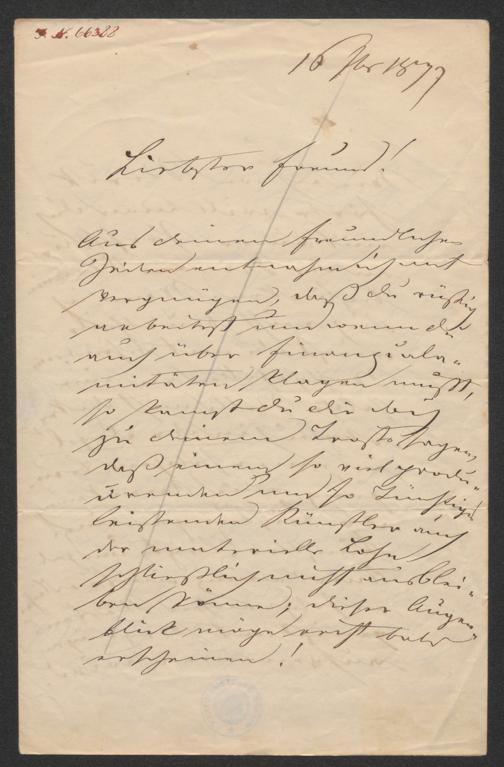 I. N. 66388
16 1877
Liebster Freund!
Aus deinen freundlichen
Zeilen entnahm ich mit
Vergnügen, daß du rüstig
arbeitest und wenn du
auch über Finanzcala-
mitäten klagen mußt,
so kannst du dir doch
zu deinem Troste sagen,
daß einem so viel produ-
cirenden und so Tüchtiges
leistenden Künstler auch
der materielle Lohn
schließlich nicht ausblei-
ben könne; dieser Augen-
blick möge recht bald
erscheinen!